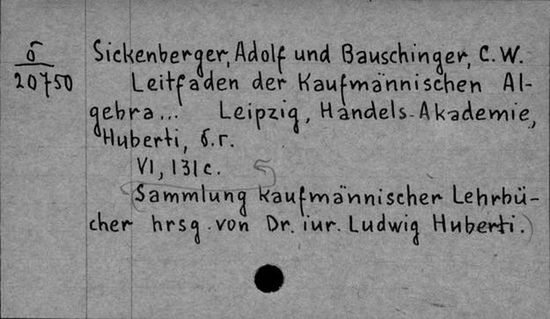 б
20750
Sickenberger, Adolf und Bauschinger, C.W.
Leitfaden der Kaufmännischen Al-
gebra... Leipzig, Handels-Akademie,
Huberti, б.г.
VI, 131 c.
(Sammlung kaufmännischer Lehrbü-
cher hrsg. von Dr. iur. Ludwig Huberti.)